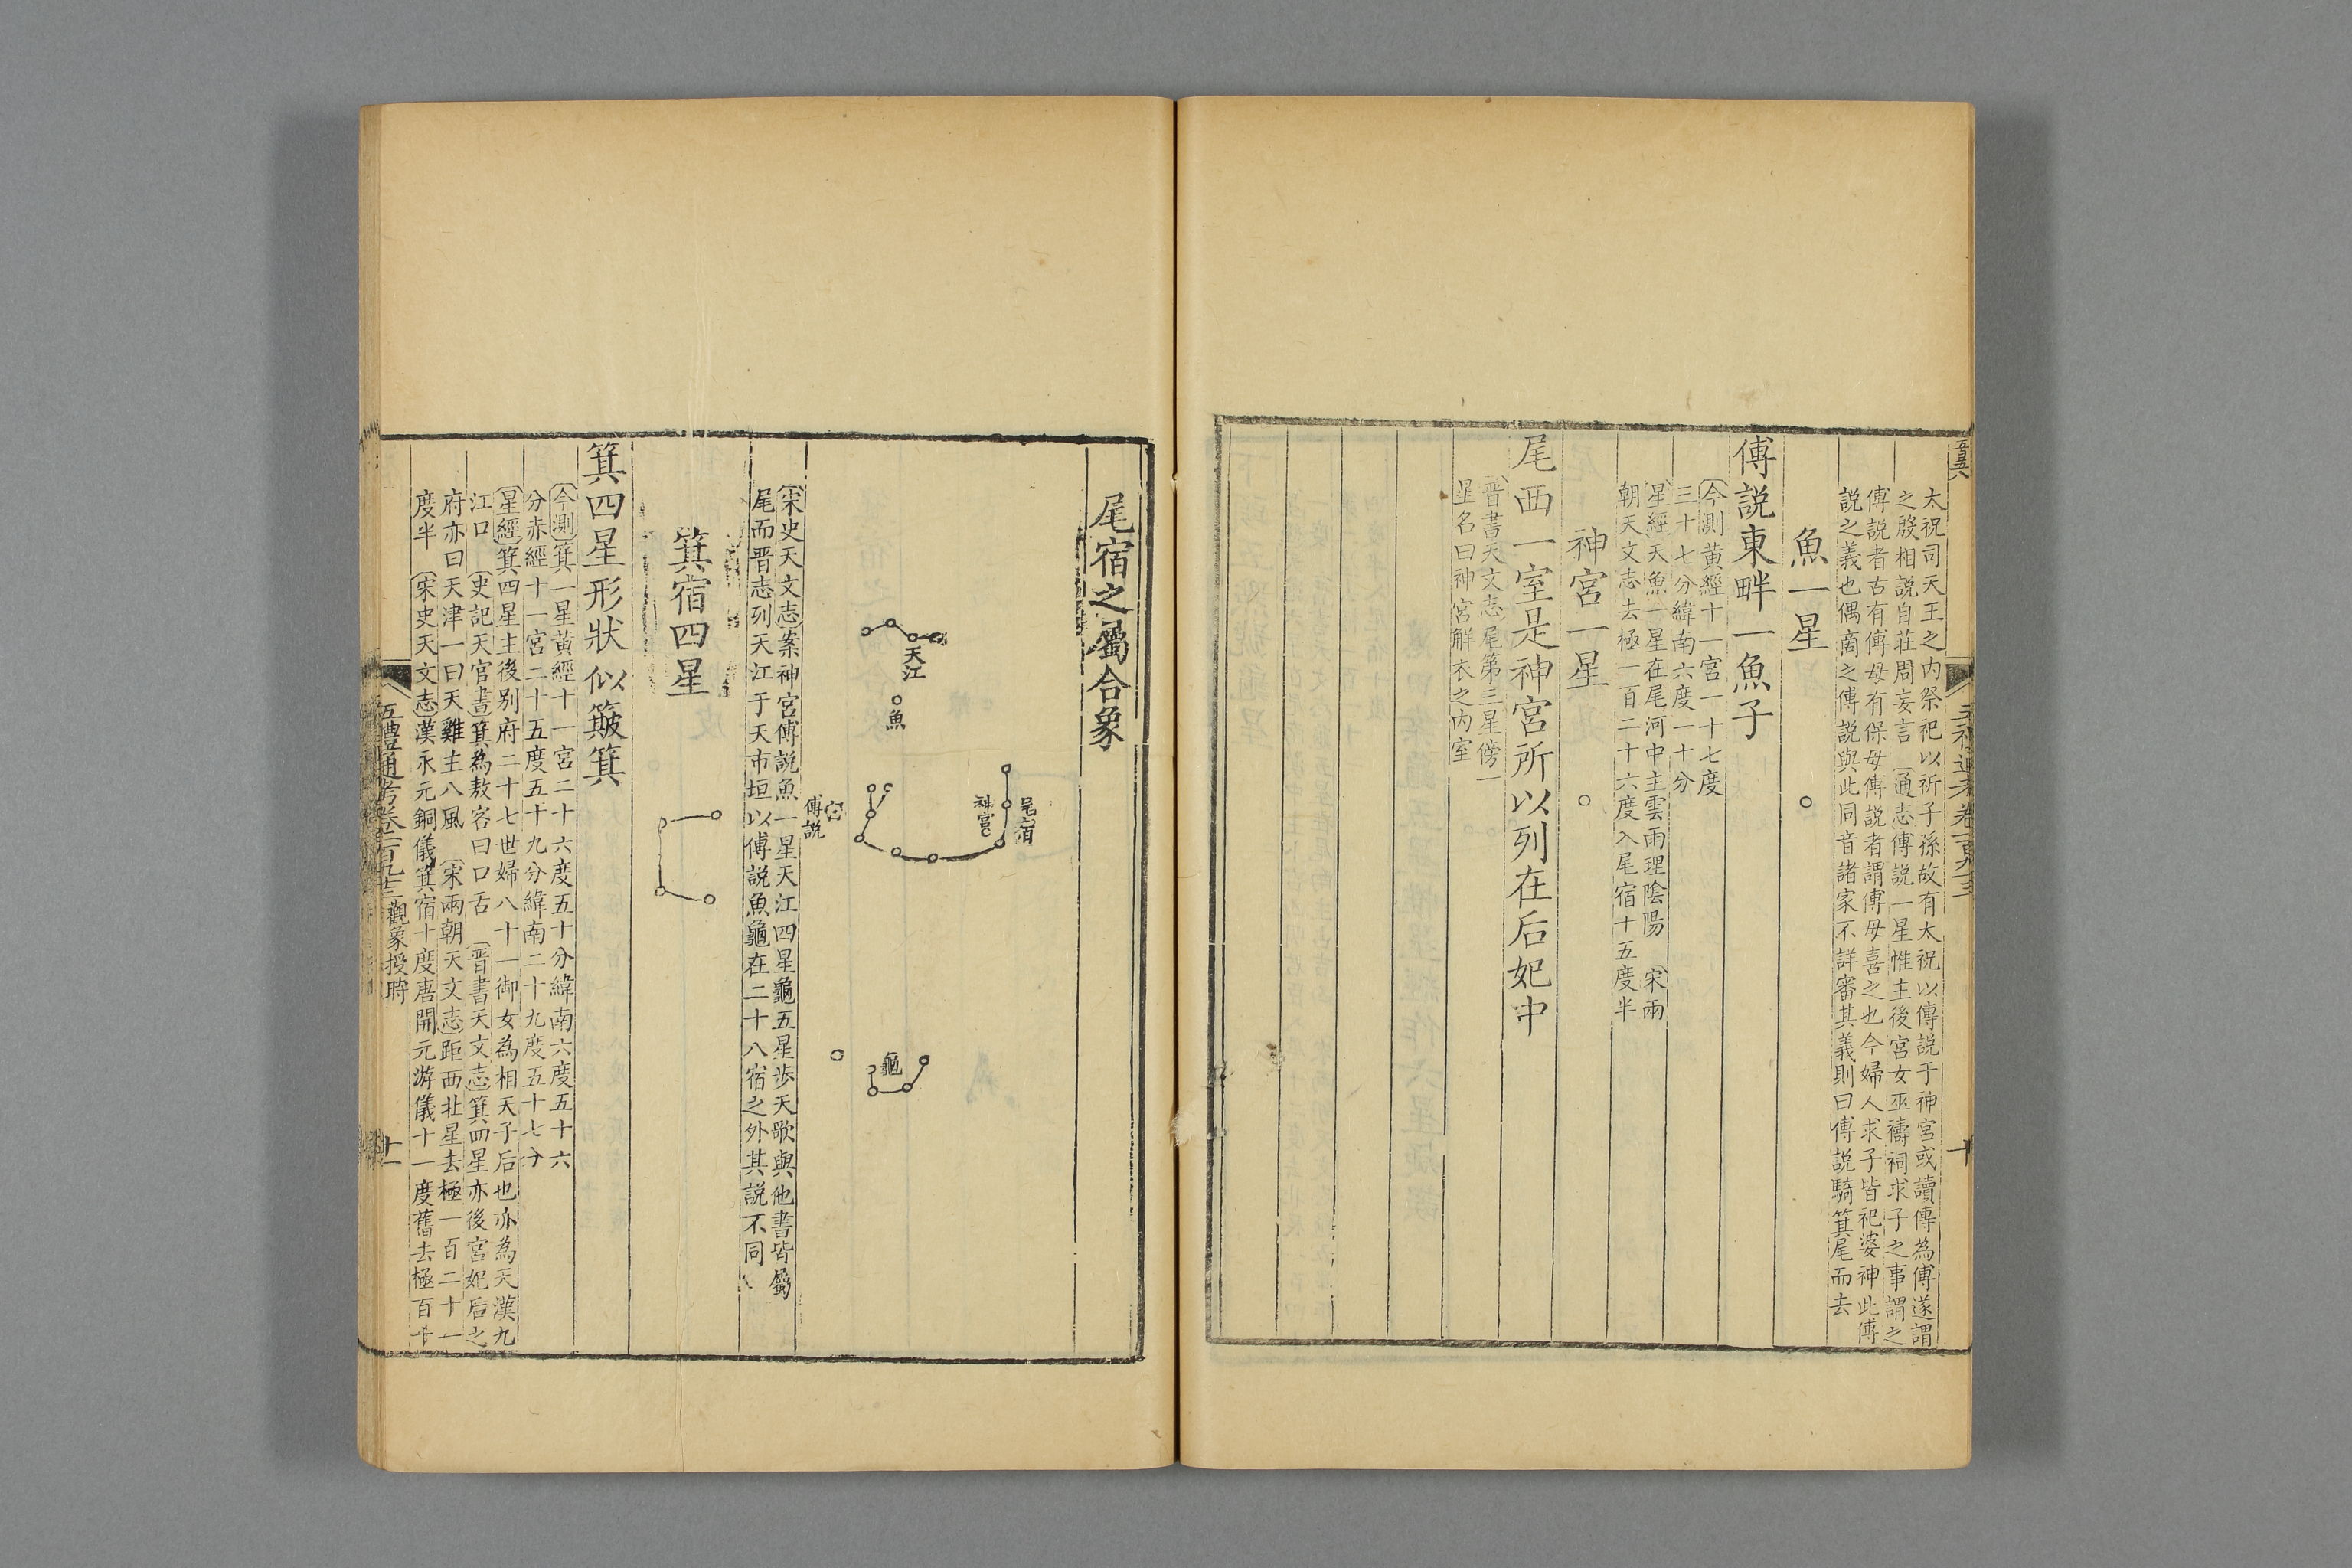 太祝司天王之内祭祀以祈子孫故有太祝以傳説于神宮或讀傳為傅遂謂
之殷相説自莊周妄言〔通志〕傳説一星惟主後宮女巫禱祠求子之事謂之
傳説者古有傅母有保母傅説者謂傅母喜之也今婦人求子皆祀婆神此傅
説之義也偶商之傅説與此同音諸家不詳審其義則曰傅説騎箕尾而去
魚一星
傅説東畔一魚子
〔今測〕黄經十一宮一十七度
三十七分緯南六度一十分
〔星經〕天魚一星在尾河中主雲雨理陰陽〔宋兩
朝天文志〕去極一百二十六度入尾宿十五度半
神宮一星
尾西一室是神宮所以列在后妃中
〔晉書天文志〕尾第三星傍一
星名曰神宮解衣之内室
十
尾宿之屬合象
尾宿
神宮
天江
魚
龜
傅説
〔宋史天文志〕案神宮傅説魚一星天江四星龜五星步天歌與他書皆屬
尾而晋志列天江于天市垣以傅説魚龜在二十八宿之外其説不同
箕宿四星
箕四星形狀似簸箕
〔今測〕箕一星黄經十一宮二十六度五十分緯南六度五十六
分赤經十一宮二十五度五十九分緯南二十九度五十七分
〔星經〕箕四星主後别府二十七世婦八十一御女為相天子后也亦為天漢九
江口〔史記天官書〕箕為敖客曰口舌〔晋書天文志〕箕四星亦後宮妃后之
府亦曰天津一曰天雞主八風〔宋兩朝天文志〕距西北星去極一百二十一
度半〔宋史天文志〕漢永元銅儀箕宿十度唐開元游儀十一度舊去極百十
五禮通考卷一百九十三觀象授時
十一